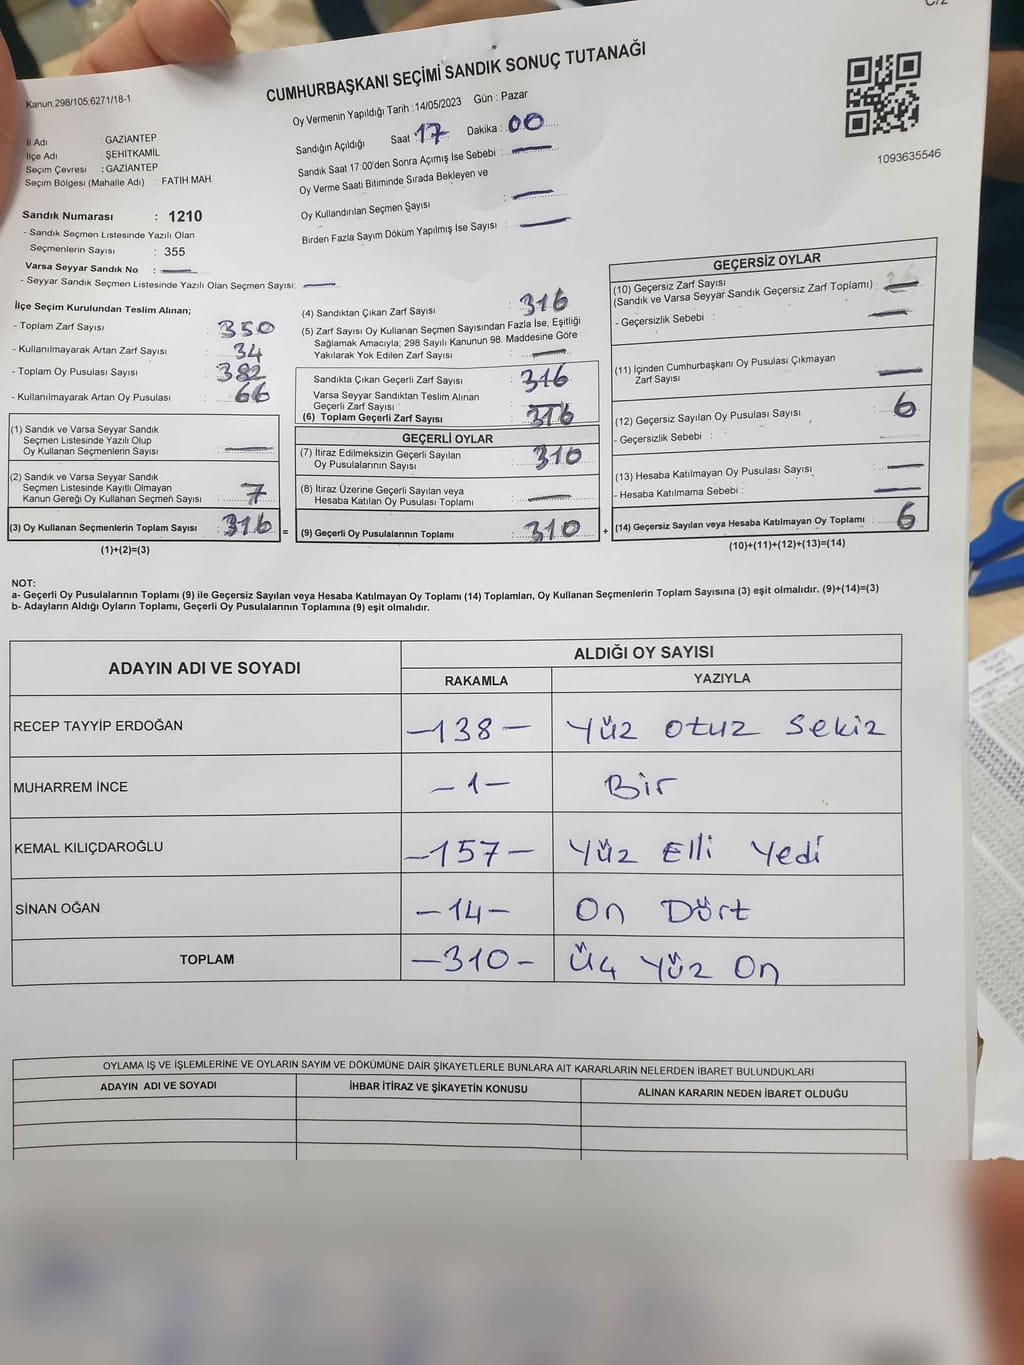 C/2
CUMHURBAŞKANI SEÇİMİ SANDIK SONUÇ TUTANAĞI
Kanun;298/105;6271/18-1
Oy Vermenin Yapıldığı Tarih : 14/05/2023 Gün : Pazar
Sandığın Açıldığı Saat 17 Dakika : 00
Sandık Saat 17:00'den Sonra Açımış İse Sebebi :
Oy Verme Saati Bitiminde Sırada Bekleyen ve
Oy Kullandırılan Seçmen Sayısı :
Birden Fazla Sayım Döküm Yapılmış İse Sayısı :
1093635546
İl Adı : GAZİANTEP
İlçe Adı : ŞEHİTKAMİL
Seçim Çevresi : GAZİANTEP
Seçim Bölgesi (Mahalle Adı) : FATİH MAH.
Sandık Numarası : 1210
- Sandık Seçmen Listesinde Yazılı Olan
Seçmenlerin Sayısı : 355
Varsa Seyyar Sandık No :
- Seyyar Sandık Seçmen Listesinde Yazılı Olan Seçmen Sayısı:
İlçe Seçim Kurulundan Teslim Alınan;
- Toplam Zarf Sayısı : 350
- Kullanılmayarak Artan Zarf Sayısı : 34
- Toplam Oy Pusulası Sayısı : 382
- Kullanılmayarak Artan Oy Pusulası : 66
(1) Sandık ve Varsa Seyyar Sandık
Seçmen Listesinde Yazılı Olup
Oy Kullanan Seçmenlerin Sayısı :
(2) Sandık ve Varsa Seyyar Sandık
Seçmen Listesinde Kayıtlı Olmayan
Kanun Gereği Oy Kullanan Seçmen Sayısı : 7
(3) Oy Kullanan Seçmenlerin Toplam Sayısı : 316 =
(1)+(2)=(3)
(4) Sandıktan Çıkan Zarf Sayısı : 316
(5) Zarf Sayısı Oy Kullanan Seçmen Sayısından Fazla İse, Eşitliği
Sağlamak Amacıyla; 298 Sayılı Kanunun 98. Maddesine Göre
Yakılarak Yok Edilen Zarf Sayısı :
Sandıkta Çıkan Geçerli Zarf Sayısı : 316
Varsa Seyyar Sandıktan Teslim Alınan
Geçerli Zarf Sayısı :
(6) Toplam Geçerli Zarf Sayısı : 316
GEÇERLİ OYLAR
(7) İtiraz Edilmeksizin Geçerli Sayılan
Oy Pusulalarının Sayısı : 310
(8) İtiraz Üzerine Geçerli Sayılan veya
Hesaba Katılan Oy Pusulası Toplamı :
(9) Geçerli Oy Pusulalarının Toplamı : 310 +
GEÇERSİZ OYLAR
(10) Geçersiz Zarf Sayısı
(Sandık ve Varsa Seyyar Sandık Geçersiz Zarf Toplamı) :
- Geçersizlik Sebebi :
(11) İçinden Cumhurbaşkanı Oy Pusulası Çıkmayan
Zarf Sayısı :
(12) Geçersiz Sayılan Oy Pusulası Sayısı : 6
- Geçersizlik Sebebi :
(13) Hesaba Katılmayan Oy Pusulası Sayısı :
- Hesaba Katılmama Sebebi :
(14) Geçersiz Sayılan veya Hesaba Katılmayan Oy Toplamı : 6
(10)+(11)+(12)+(13)=(14)
NOT:
a- Geçerli Oy Pusulalarının Toplamı (9) ile Geçersiz Sayılan veya Hesaba Katılmayan Oy Toplamı (14) Toplamları, Oy Kullanan Seçmenlerin Toplam Sayısına (3) eşit olmalıdır. (9)+(14)=(3)
b- Adayların Aldığı Oyların Toplamı, Geçerli Oy Pusulalarının Toplamına (9) eşit olmalıdır.
ADAYIN ADI VE SOYADI ALDIĞI OY SAYISI
RAKAMLA YAZIYLA
RECEP TAYYİP ERDOĞAN -138- Yüz Otuz Sekiz
MUHARREM İNCE -1- Bir
KEMAL KILIÇDAROĞLU -157- Yüz Elli Yedi
SİNAN OĞAN -14- On Dört
TOPLAM -310- Üç Yüz On
OYLAMA İŞ VE İŞLEMLERİNE VE OYLARIN SAYIM VE DÖKÜMÜNE DAİR ŞİKAYETLERLE BUNLARA AİT KARARLARIN NELERDEN İBARET BULUNDUKLARI
ADAYIN ADI VE SOYADI İHBAR İTİRAZ VE ŞİKAYETİN KONUSU ALINAN KARARIN NEDEN İBARET OLDUĞU